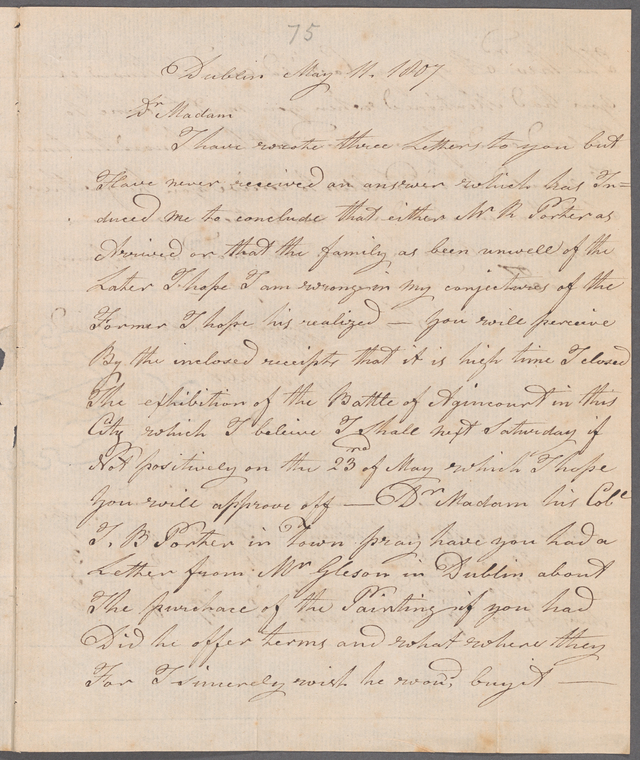 75
Dublin May 11. 1807
Dr Madam
I have wrote three Letters to you but
Have never received an answer which has In=
duced me to conclude that either Mr R Porter as
Arrived or that the family as been unwell of the
Later I hope I am wrong in my conjectures of the
Former I hope his realized — you will perceive
By the inclosed receipts that it is high time I closed
The exhibition of the Battle of Agincourt in this
City which I beleive I shall next Saturday if
Not positively on the 23rd of May which I hope
you will approve off — Dr Madam his Coll
J. B Porter in Town pray have you had a
Letter from Mr Gleson in Dublin about
The purchace of the Painting if you had
Did he offer terms and what where they
For I sincerely wish he woud, buy it —